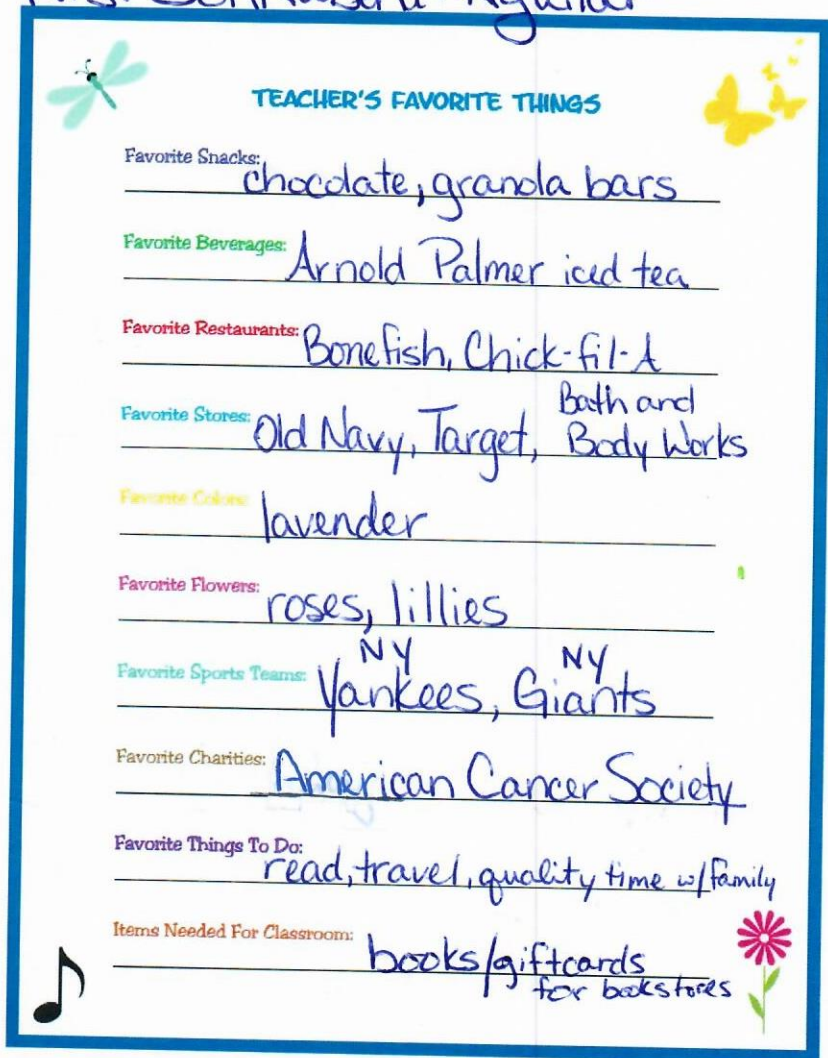 TEACHER'S FAVORITE THINGS
Favorite Snacks: chocolate, granola bars
Favorite Beverages: Arnold Palmer iced tea
Favorite Restaurants: Bonefish, Chick-fil-A
Favorite Stores: Old Navy, Target, Bath and
Body Works
Favorite Colors: lavender
Favorite Flowers: roses, lillies
NY NY
Favorite Sports Teams: Yankees, Giants
Favorite Charities: American Cancer Society
Favorite Things To Do: read, travel, quality time w/family
Items Needed For Classroom: books/giftcards
for bookstores